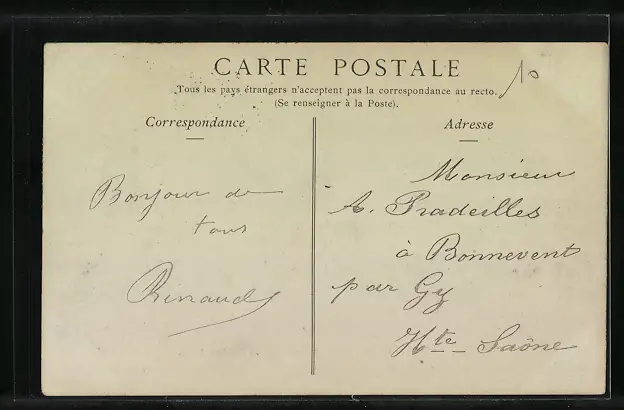 CARTE POSTALE
10
Tous les pays étrangers n'acceptent pas la correspondance au recto.
(Se renseigner à la Poste).
Correspondance
Bonjour de
tous
Renaud
Adresse
Monsieur
A. Pradeilles
à Bonnevent
par Gy
Hte-Saône